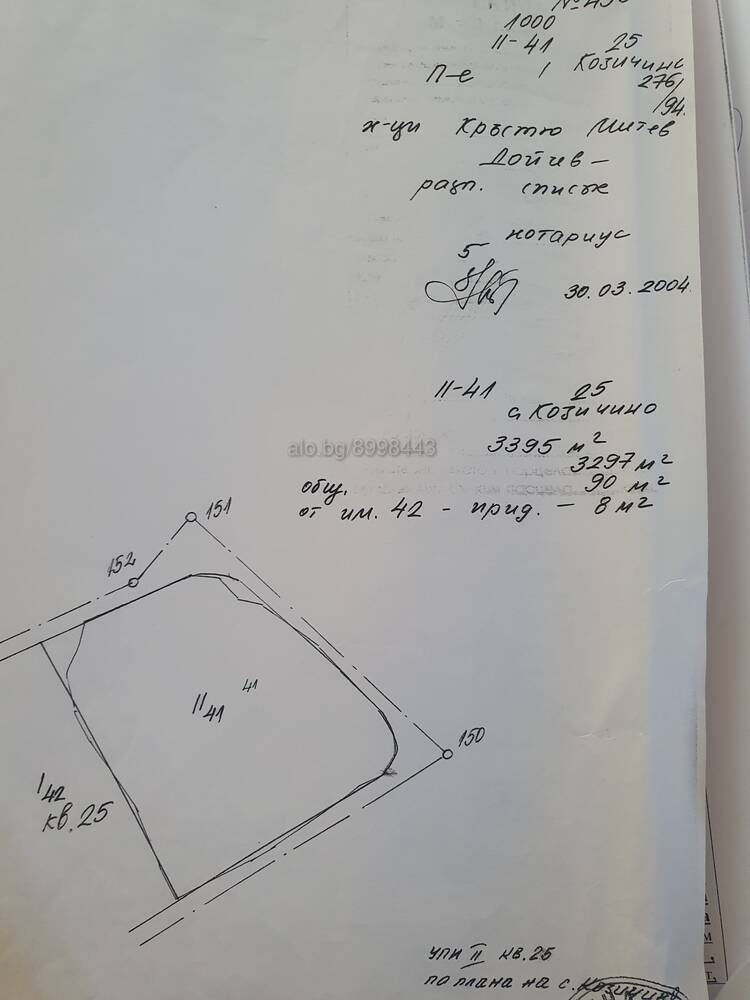 1000
II-41 25
П-е I Козичино
276/
/94.
х-ци Кръстю Митев
Дойчев-
разп. списък
нотариус
5
30.03.2004
II-41 25
с. Козичино
3395 м²
3297 м²
общ. 90 м²
от им. 42 - прид. - 8 м²
alo.bg/8998443
151
152
II 41
41
150
I 42
кв. 25
УПИ II кв. 25
по плана на с. Козичино